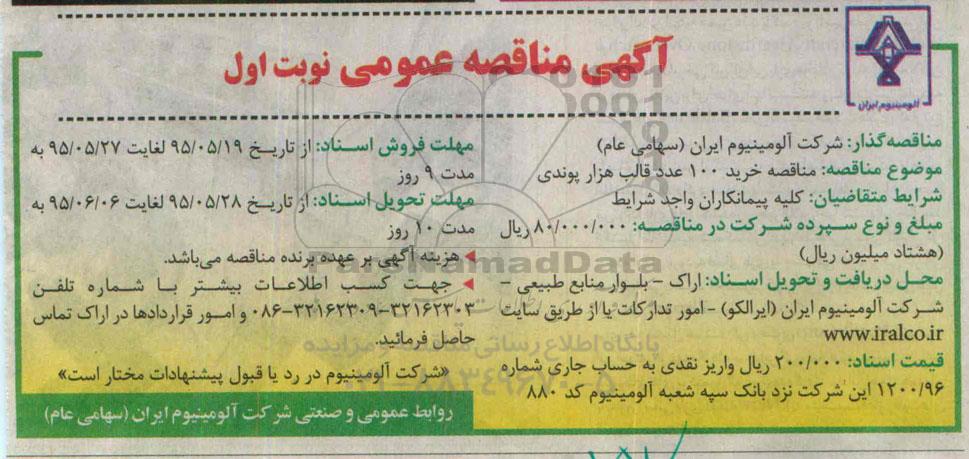 آگهی مناقصه عمومی نوبت اول
آلومینیوم ایران
مناقصه‌گذار: شرکت آلومینیوم ایران (سهامی عام)
موضوع مناقصه: مناقصه خرید ۱۰۰ عدد قالب هزار پوندی
شرایط متقاضیان: کلیه پیمانکاران واجد شرایط
مبلغ و نوع سپرده شرکت در مناقصه: ۸۰/۰۰۰/۰۰۰ ریال
(هشتاد میلیون ریال)
محل دریافت و تحویل اسناد: اراک - بلوار منابع طبیعی -
شرکت آلومینیوم ایران (ایرالکو) - امور تدارکات یا از طریق سایت
www.iralco.ir
قیمت اسناد: ۲۰۰/۰۰۰ ریال واریز نقدی به حساب جاری شماره
۱۲۰۰/۹۶ این شرکت نزد بانک سپه شعبه آلومینیوم کد ۸۸۰
مهلت فروش اسناد: از تاریخ ۹۵/۰۵/۱۹ لغایت ۹۵/۰۵/۲۷ به
مدت ۹ روز
مهلت تحویل اسناد: از تاریخ ۹۵/۰۵/۲۸ لغایت ۹۵/۰۶/۰۶ به
مدت ۱۰ روز
هزینه آگهی بر عهده برنده مناقصه می‌باشد.
جهت کسب اطلاعات بیشتر با شماره تلفن
۳۲۱۶۲۳۰۳-۳۲۱۶۲۳۰۹-۰۸۶ و امور قراردادها در اراک تماس
حاصل فرمائید.
«شرکت آلومینیوم در رد یا قبول پیشنهادات مختار است»
روابط عمومی و صنعتی شرکت آلومینیوم ایران (سهامی عام)
ParsNamadData
پایگاه اطلاع رسانی مناقصه و مزایده